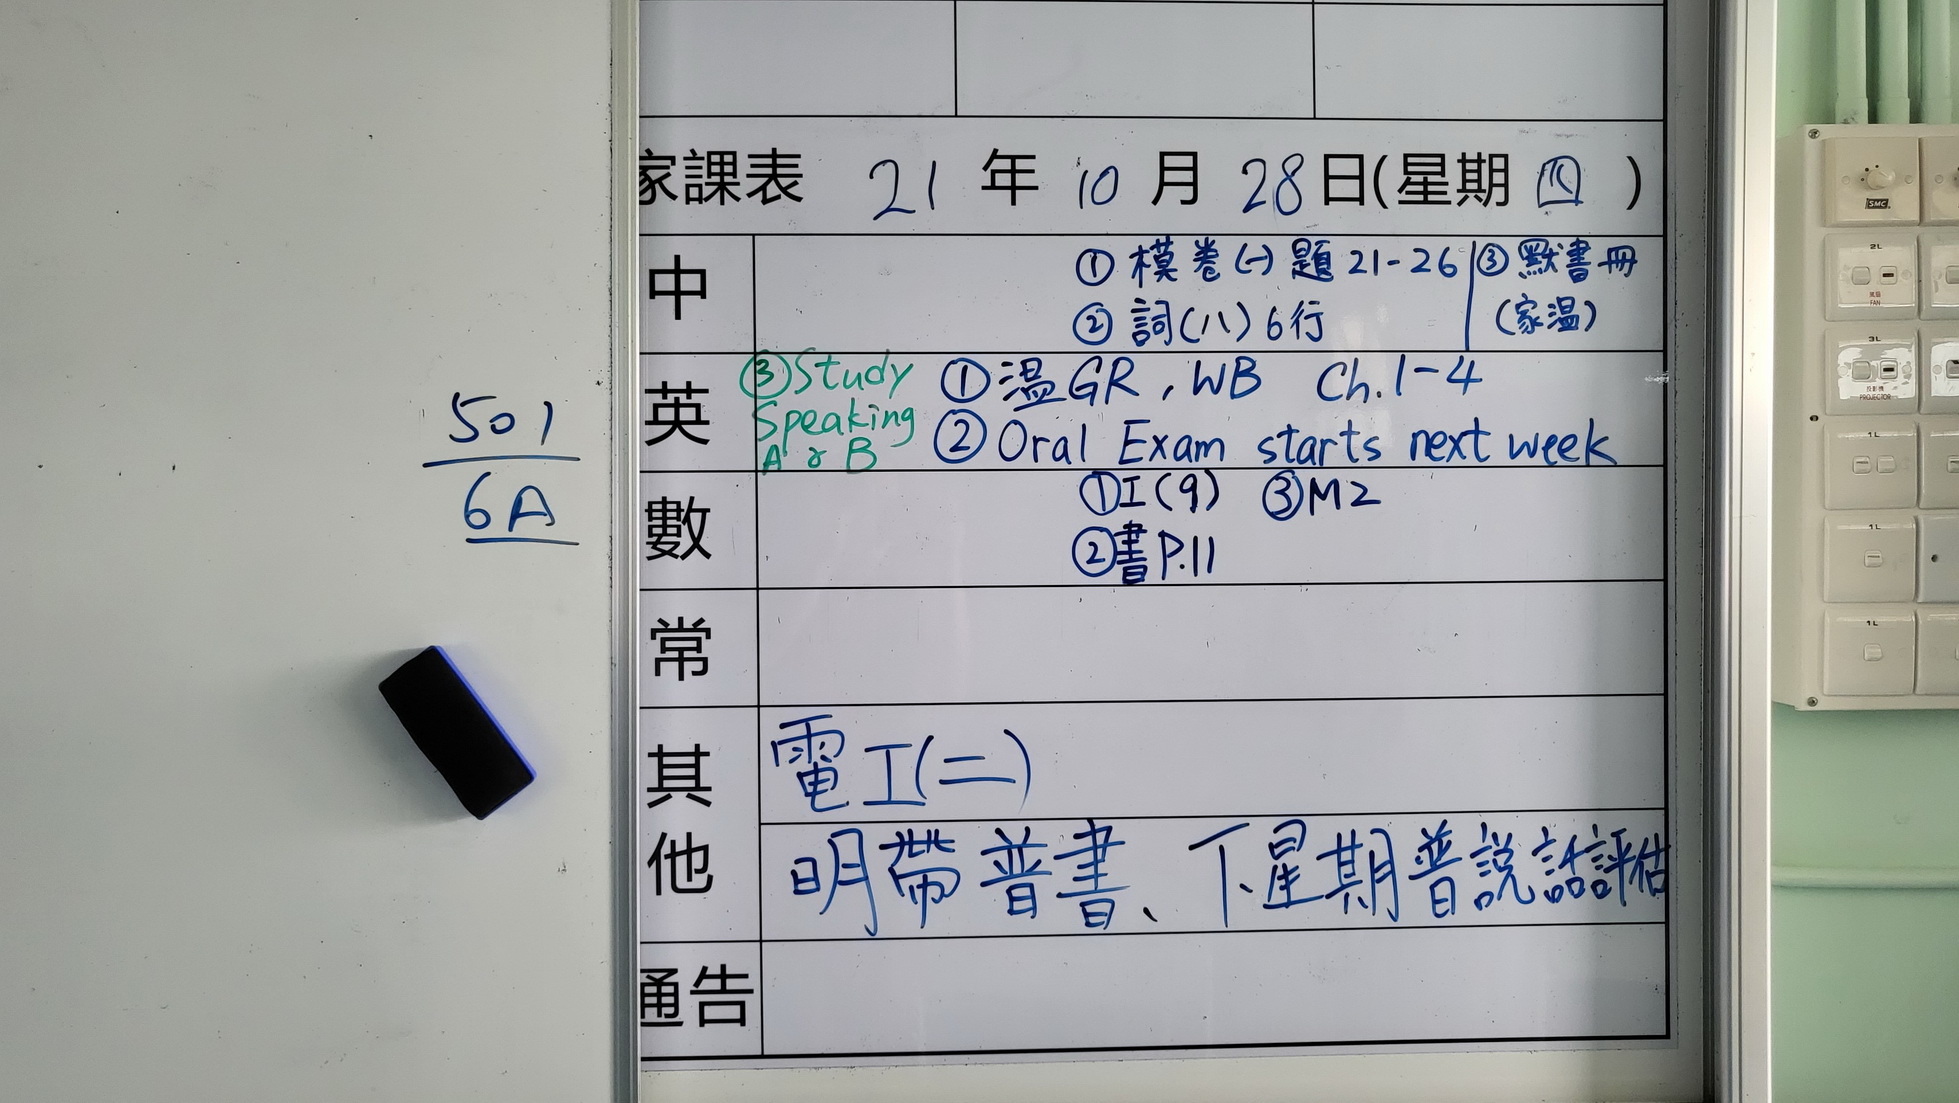 501
6A
家課表 21 年 10 月 28 日(星期 四 )
中
① 模卷(一) 題 21-26
② 詞(八) 6行
③ 默書冊
(家温)
英
③ Study
Speaking
A & B
① 温GR, WB Ch.1-4
② Oral Exam starts next week
數
① I(9) ③ M2
② 書P.11
常
其他
電工(二)
明帶普書、下星期普說話評估
通告
SMC
2L
風扇
FAN
3L
投影機
PROJECTOR
1L
1L
1L